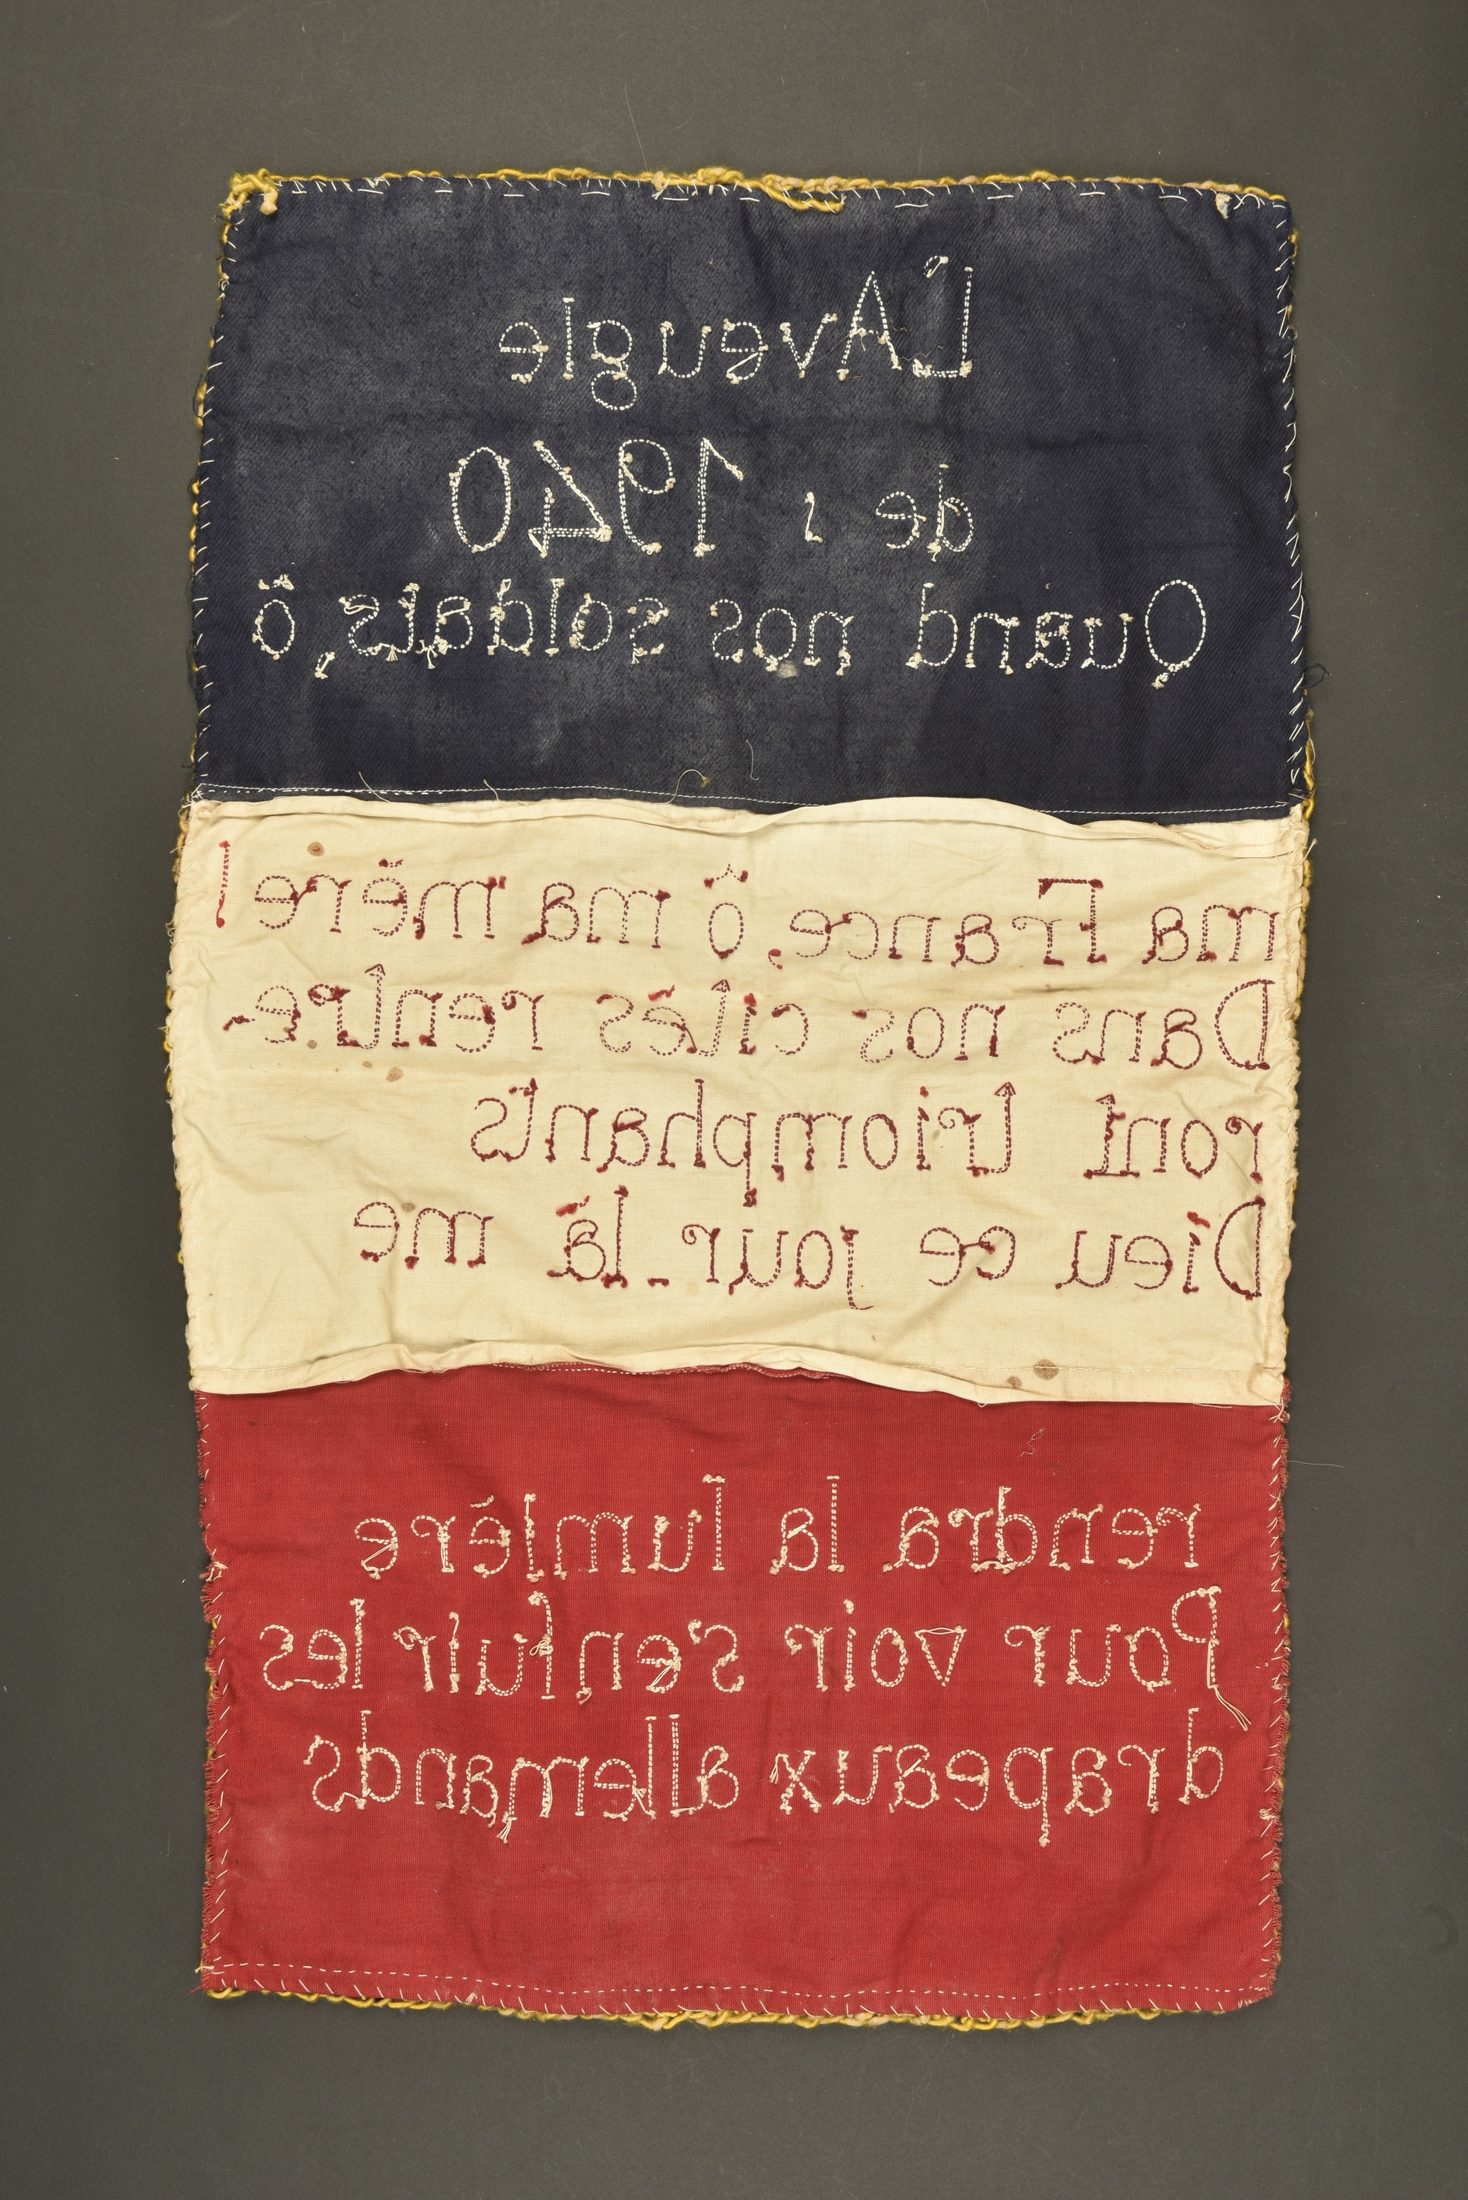 L'Aveugle
de 1 1940
Quand nos soldats, ô
ma France, ô ma mère !
Dans nos cités rentre-
ront triomphants
Dieu ce jour-là me
rendra la lumière
Pour voir s'enfuir les
drapeaux allemands